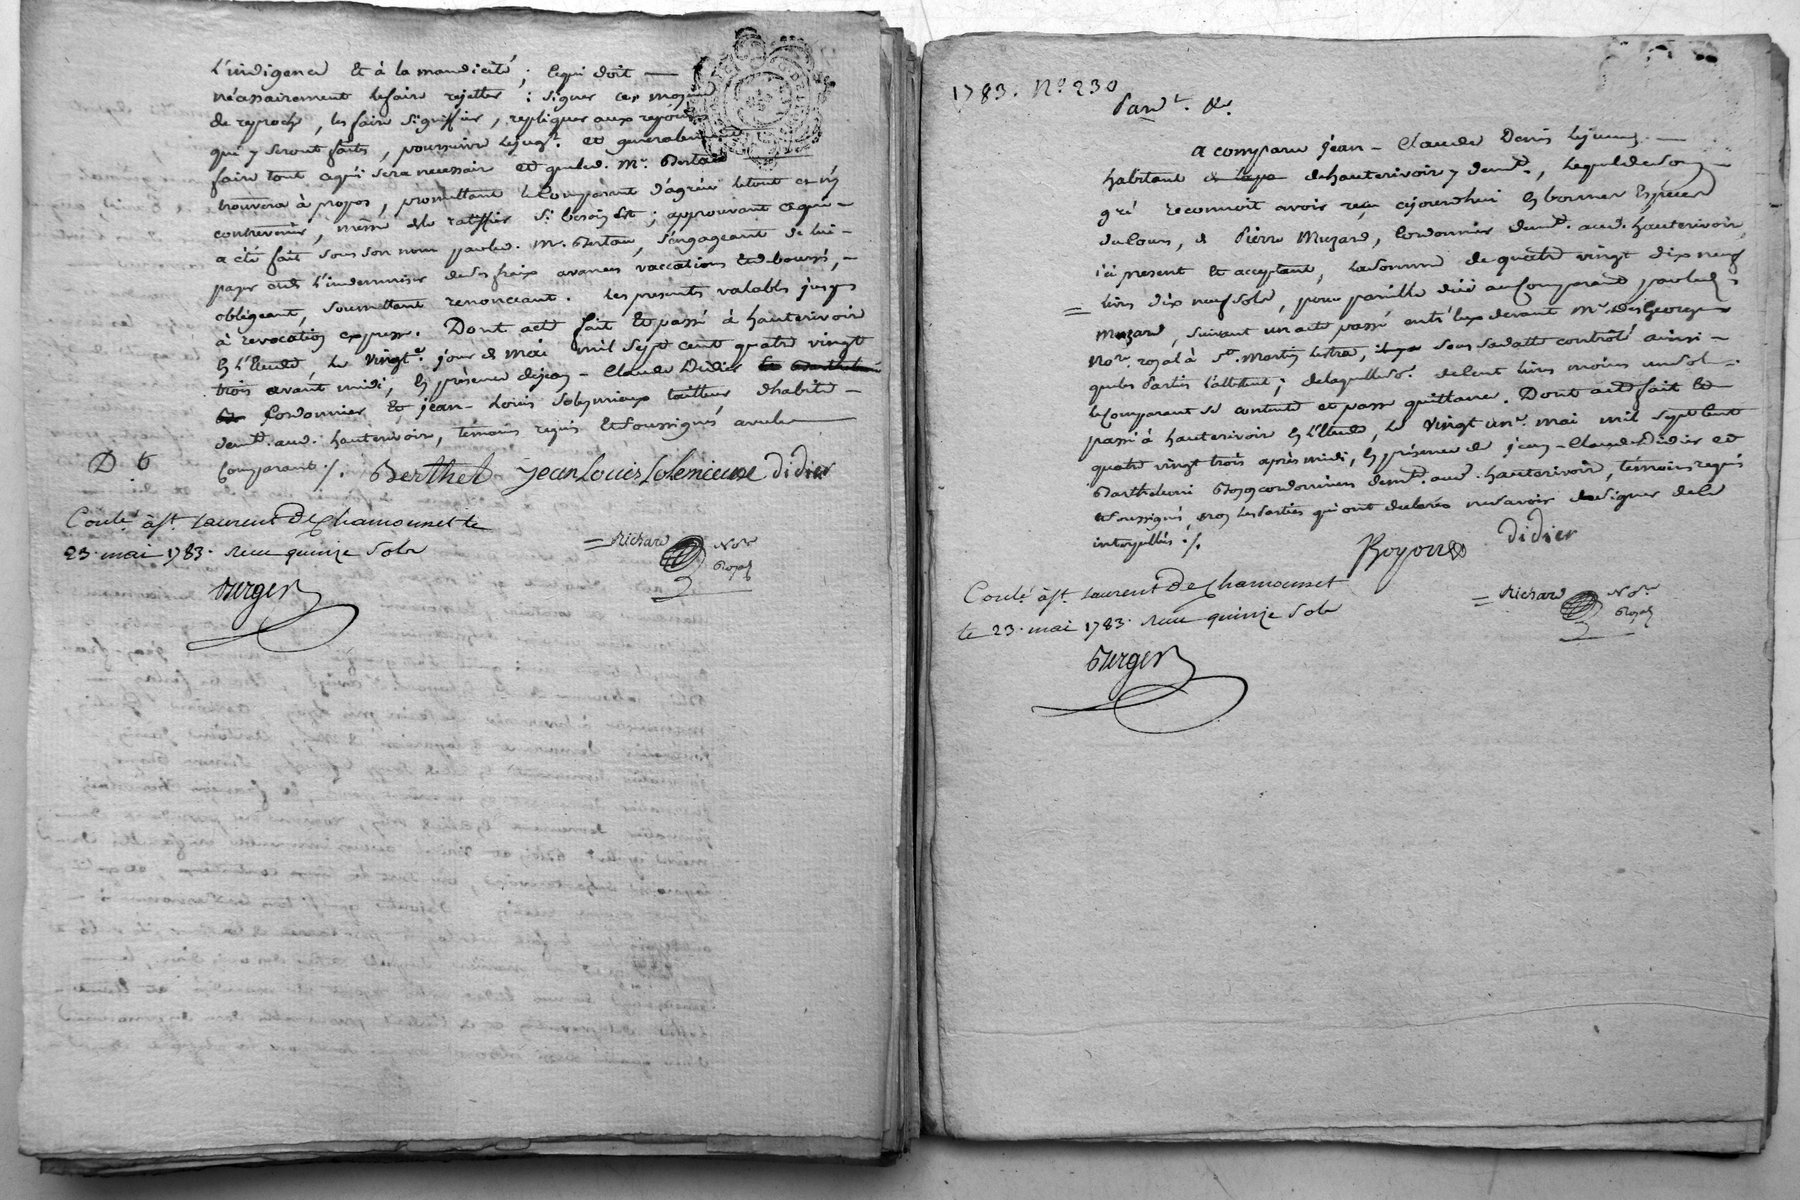 L'indigence Et à la mandicité ; cequi doit —
nécessairement lefaire rejetter : signer ces moyens
de reproche, les faire signiffier, repliquer aux reponses
qui y seront faites, poursuivre lejugt. et generalement
faire tout cequi sera necessair et queled. Mr. Bertau
trouvera à propos, promettant le Comparant d'agréer letout et n'y
contrevenir, même de le ratiffier si besoin Est ; approuvant cequi —
a été fait sous son nom parled. Mr. Bertau, s'engageant de lui —
payer et de l'indemniser de ses fraix avances vaccations Et debourés, —
obligeant, soumettant renonceant. Les presents valables jusqu
à revocation expresse. Dont acte fait Et passé à hauterivoir
En l'Etude, Le vingte. jour de mai mil sept cent quatre vingt
trois avant midi, En présence de jean - Claude Didier
Cordonnier Et jean - Louis Solynieux tailleur d'habits —
demt. aud. hauterivoir, temoins requis Et soussignés avec le
Comparant ./.
D b
Berthet jean Louis Solenieuxe didier
Conlé. à st. Laurent De Chamousset le
23. mai 1783. Reçu quinze Sols
= Richard Nore.
Royal
Burger
1783. No. 230
Pardt. &c.
A comparu jean - Claude Denis Lejeune —
habitant de hauterivoir y demt., Lequel de son
gré reconnoit avoir reçu cejourdhui En bonnes Espèces
du Cours, de Pierre Muzard, Cordonnier demt. aud. hauterivoir,
ici present Et acceptant, La Somme de quatre vingt dix neuf
livres dix neuf sols, pour pareille düe au Comparant par led.
= Muzard, suivant un acte passé entr'Eux devant Mr. DesGeorges
Nore. royal à St. Martin Lestra, sous sa datte controlé ainsi —
que les Parties l'attestent ; de laquelle so. de Cent livres moins un sol —
le Comparant se contente et passe quittance. Dont acte fait Et
passé à hauterivoir En l'Etude, Le vingt une. mai mil sept Cent
quatre vingt trois après midi, En présence de jean - Claude Didier et
Barthelemi Royon cordonniers demt. aud. hauterivoir, témoins requis
et soussignés, non les Parties qui ont declarés ne savoir signer de ce
interpellés ./.
Royon didier
Conlé. à st. Laurent De Chamousset
le 23. mai 1783. Reçu quinze Sols
= Richard Nore.
Royal
Burger